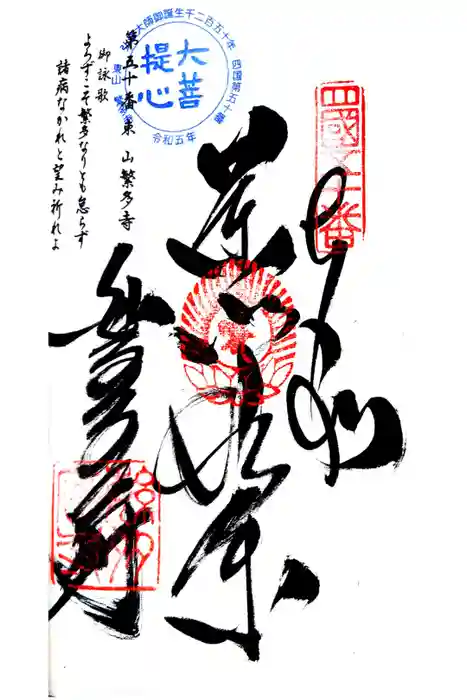 四國五十番
奉納
大師御誕生千二百五十年 四国第五十番
大菩
提心
東山
令和五年
第五十番東山繁多寺
御詠歌
よろずこそ繁多なりとも怠らず
諸病なかれと望み祈れよ
繁多寺